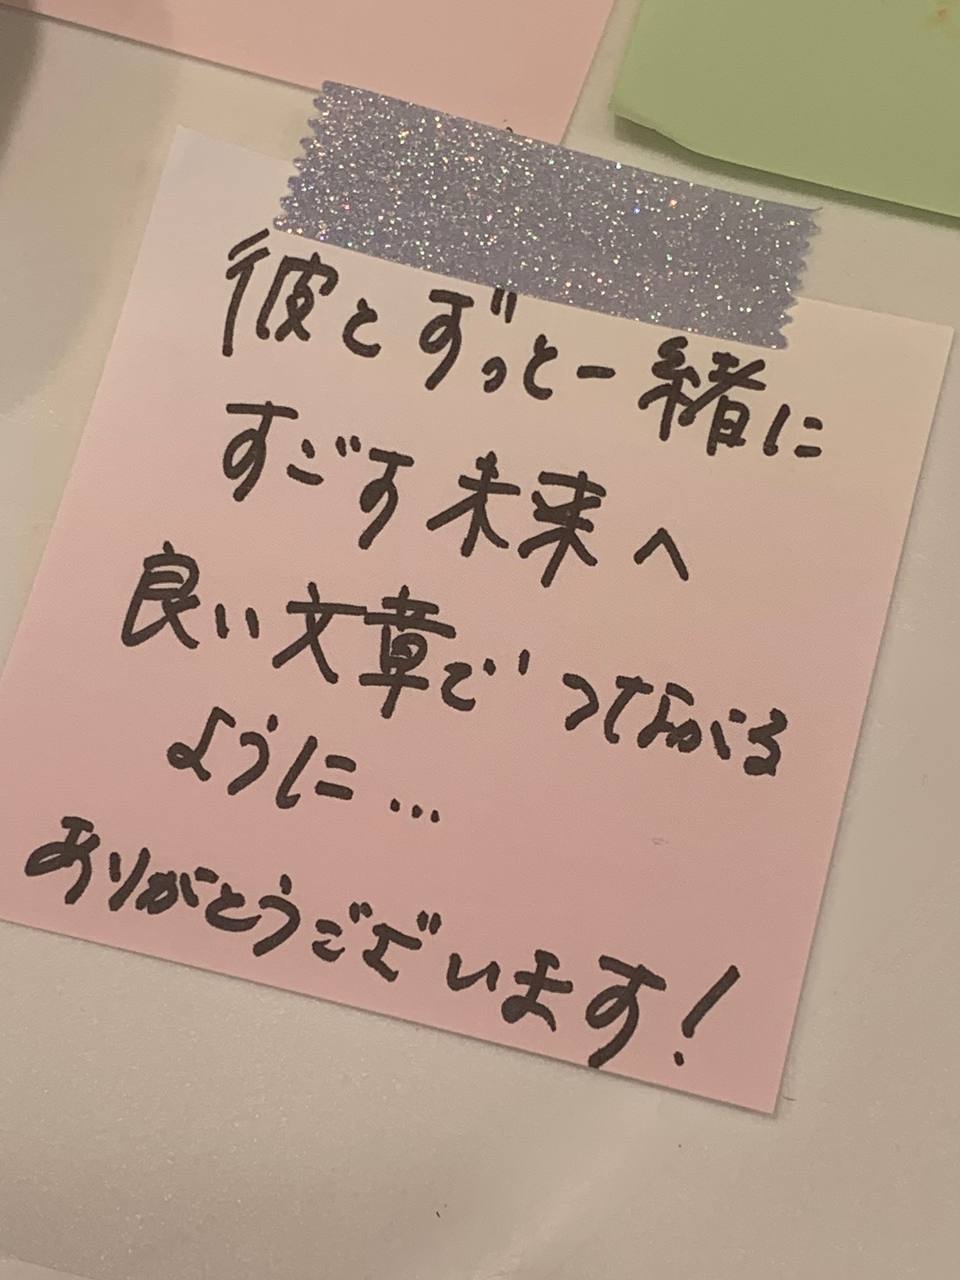 彼とずっと一緒に
すごす未来へ
良い文章でつながる
ように...
ありがとうございます!